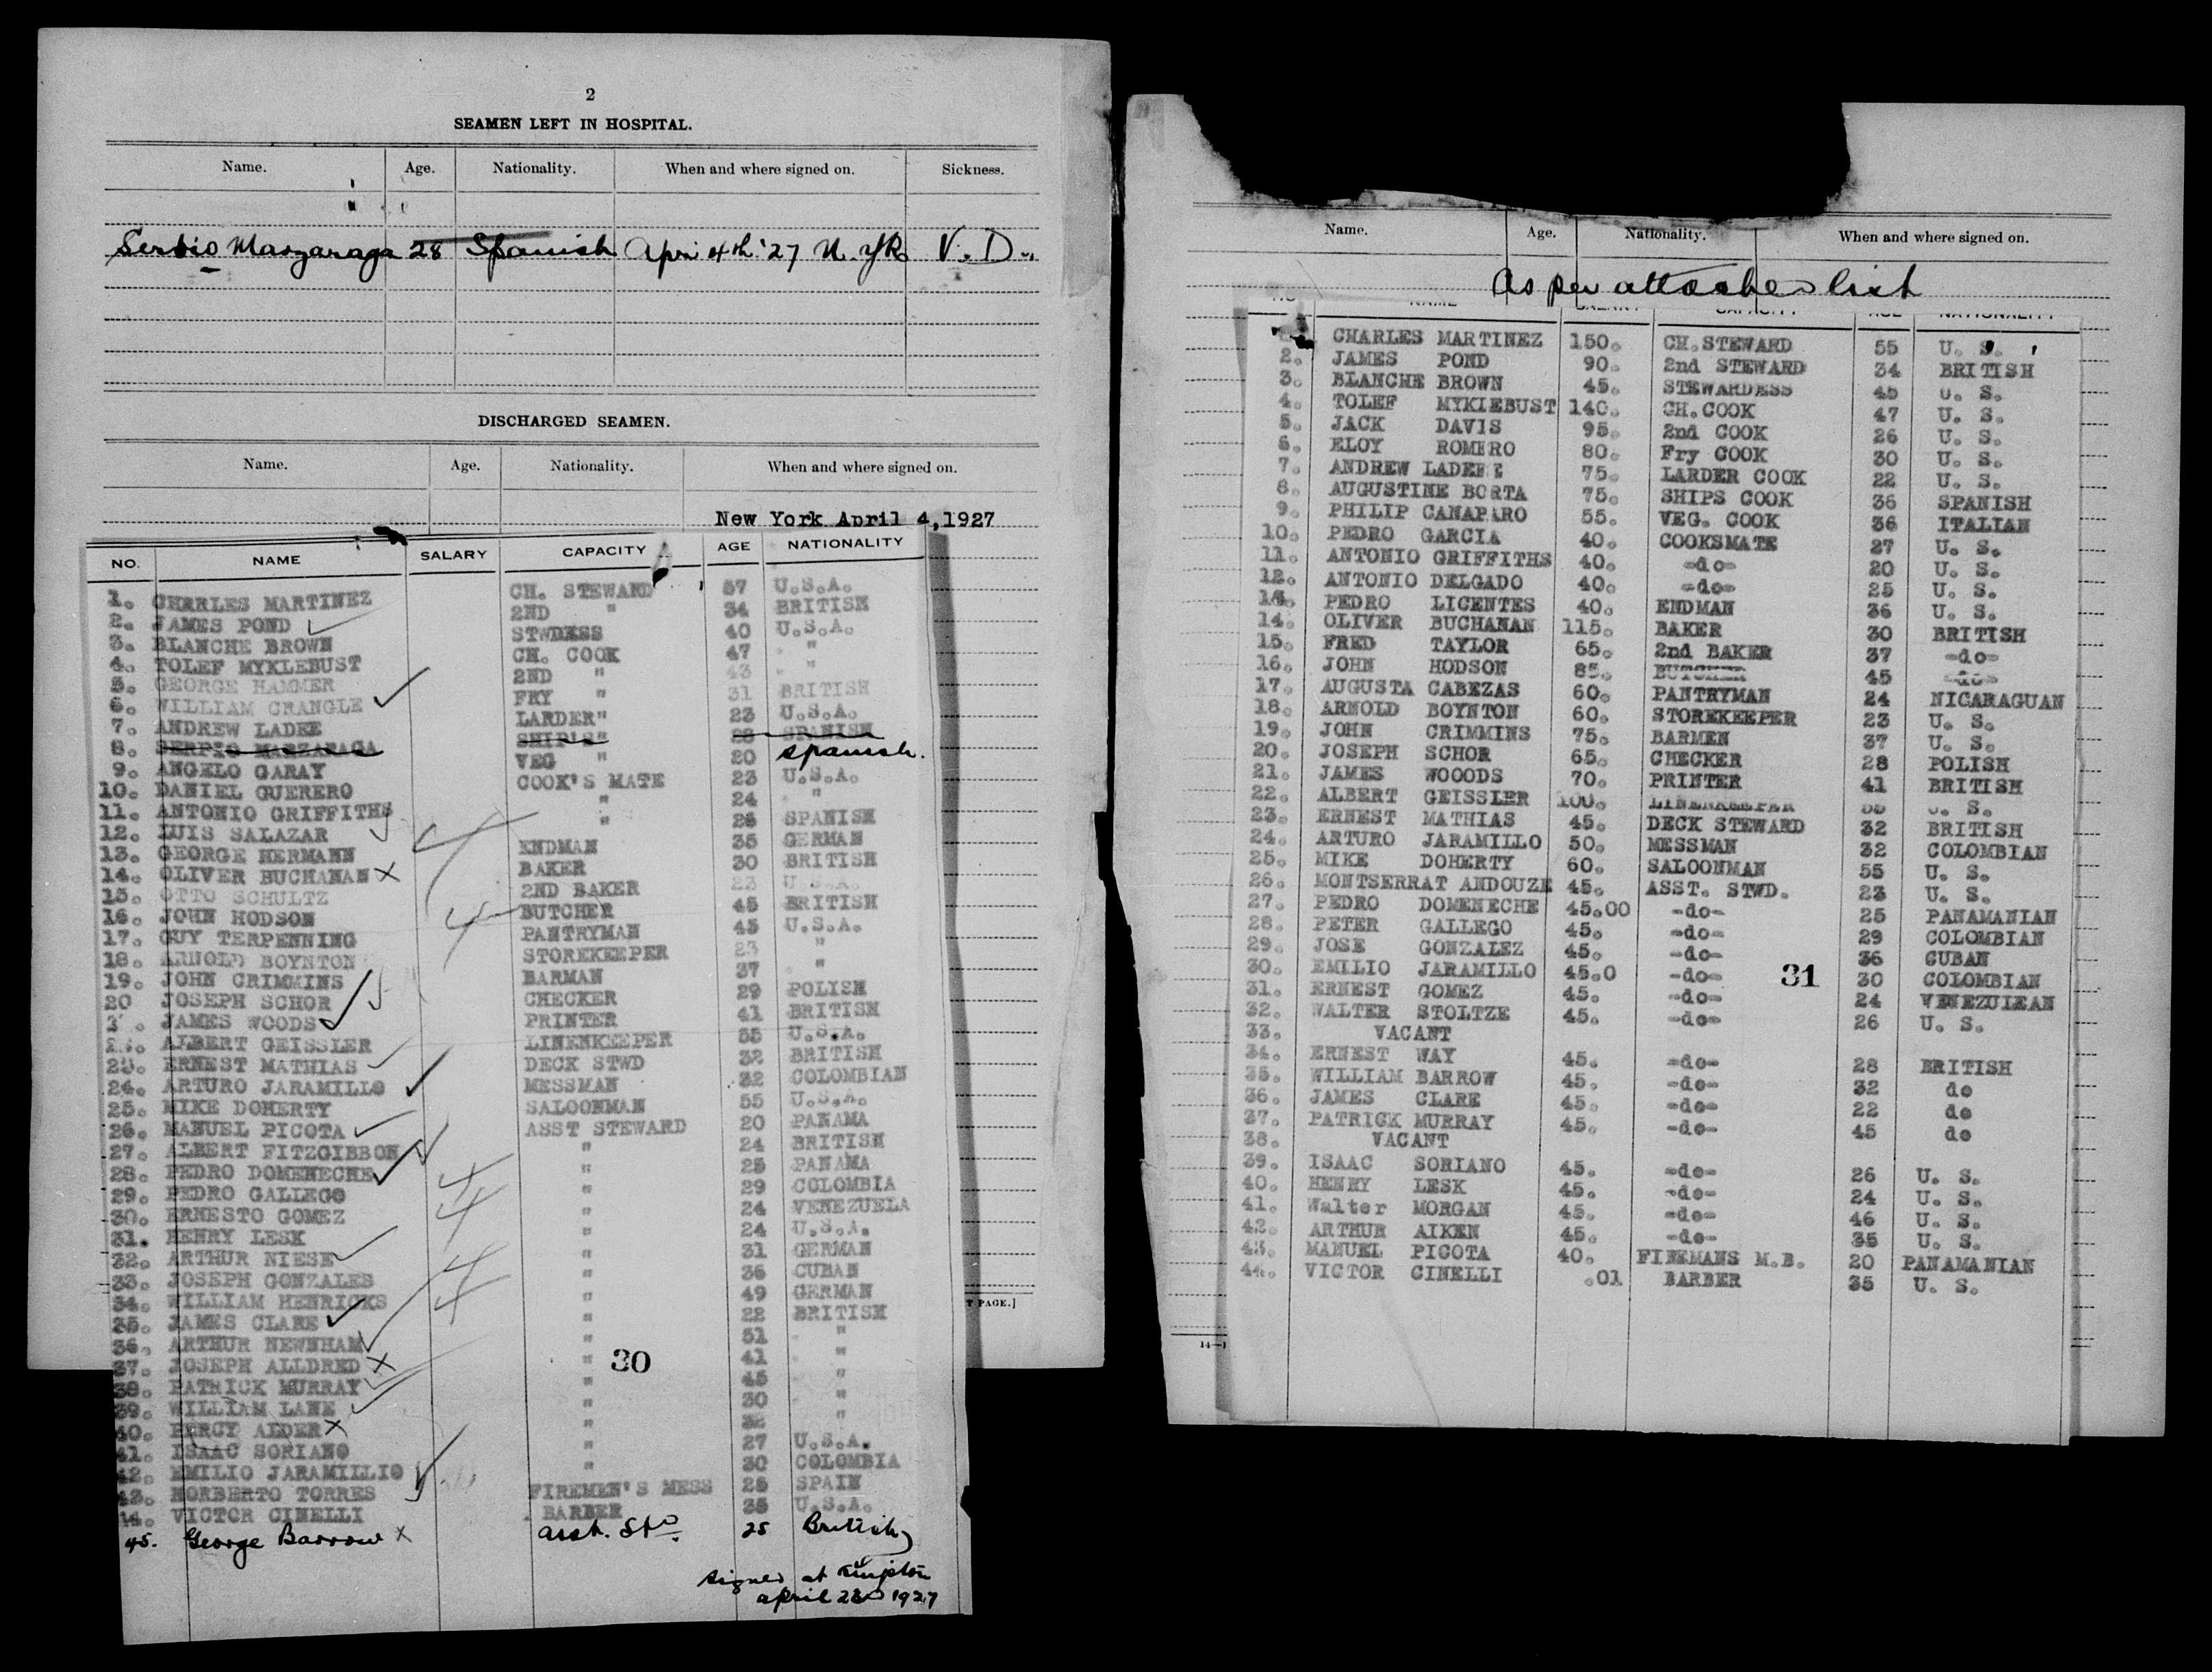 2
SEAMEN LEFT IN HOSPITAL.
Name. Age. Nationality. When and where signed on. Sickness.
Serbio Marzaraga 28 Spanish Apri 4th '27 N. YK V. D.
DISCHARGED SEAMEN.
Name. Age. Nationality. When and where signed on.
New York April 4,1927
NO. NAME SALARY CAPACITY AGE NATIONALITY
1. CHARLES MARTINEZ CH. STEWARD 57 U.S.A.
2. JAMES POND 2ND " 34 BRITISH
3. BLANCHE BROWN STWDESS 40 U.S.A.
4. TOLEF MYKLEBUST CH. COOK 47 "
5. GEORGE HAMMER 2ND " 43 "
6. WILLIAM CRANGLE FRY " 31 BRITISH
7. ANDREW LADEE LARDER" 23 U.S.A.
8. SERPIO MARZARAGA SHIP'S" 28 SPANISH
9. ANGELO GARAY VEG " 20 Spanish.
10. DANIEL GUERERO COOK'S MATE 23 U.S.A.
11. ANTONIO GRIFFITHS " 24 "
12. LUIS SALAZAR " 26 SPANISH
13. GEORGE HERMANN ENDMAN 35 GERMAN
14. OLIVER BUCHANAN X BAKER 30 BRITISH
15. OTTO SCHULTZ 2ND BAKER 23 U.S.A.
16. JOHN HODSON BUTCHER 45 BRITISH
17. GUY TERPENNING PANTRYMAN 45 U.S.A.
18. ARNOLD BOYNTON STOREKEEPER 23 "
19. JOHN CRIMMINS BARMAN 37 "
20 JOSEPH SCHOR CHECKER 29 POLISH
JAMES WOODS PRINTER 41 BRITISH
ALBERT GEISSLER LINENKEEPER 55 U.S.A.
23. ERNEST MATHIAS DECK STWD 32 BRITISH
24. ARTURO JARAMILLO MESSMAN 32 COLOMBIAN
25. MIKE DOHERTY SALOONMAN 55 U.S.A.
26. MANUEL PICOTA ASST STEWARD 20 PANAMA
27. ALBERT FITZGIBBON " 24 BRITISH
28. PEDRO DOMENECHE " 25 PANAMA
29. PEDRO GALLEGO " 29 COLOMBIA
30. ERNESTO GOMEZ " 24 VENEZUELA
31. HENRY LESK " 24 U.S.A.
32. ARTHUR NIESE " 31 GERMAN
33. JOSEPH GONZALES " 36 CUBAN
34. WILLIAM HENRICKS " 49 GERMAN
35. JAMES CLARE " 22 BRITISH
36. ARTHUR NEWNHAM " 51 "
37. JOSEPH ALLDRED X " 41 "
38. PATRICK MURRAY " 45 "
39. WILLIAM LANE " 30 "
40. PERCY ALDER X " 32 "
41. ISAAC SORIANO " 27 U.S.A.
42. EMILIO JARAMILLIO " 30 COLOMBIA
43. NORBERTO TORRES FIREMEN'S MESS 25 SPAIN
44. VICTOR CINELLI BARBER 35 U.S.A.
45. George Barrow X asst. Std. 25 British
signed at Kingston
april 23 1927
30
T PAGE.]
Name. Age. Nationality. When and where signed on.
As per attached list
NO NAME SALARY CAPACITY AGE NATIONALITY
CHARLES MARTINEZ 150. CH.STEWARD 55 U. S.
2. JAMES POND 90. 2nd STEWARD 34 BRITISH
3. BLANCHE BROWN 45. STEWARDESS 45 U. S.
4. TOLEF MYKIEBUST 140. CH.COOK 47 U. S.
5. JACK DAVIS 95. 2nd COOK 26 U. S.
6. ELOY ROMERO 80. Fry COOK 30 U. S.
7. ANDREW LADEEE 75. LARDER COOK 22 U. S.
8. AUGUSTINE BORTA 75. SHIPS COOK 36 SPANISH
9. PHILIP CANAPARO 55. VEG. COOK 36 ITALIAN
10. PEDRO GARCIA 40. COOKSMATE 27 U. S.
11. ANTONIO GRIFFITHS 40. -do- 20 U. S.
12. ANTONIO DELGADO 40. -do- 25 U. S.
13. PEDRO LICENTES 40. ENDMAN 36 U. S.
14. OLIVER BUCHANAN 115. BAKER 30 BRITISH
15. FRED TAYLOR 65. 2nd BAKER 37 -do-
16. JOHN HODSON 85. BUTCHER 45 -do-
17. AUGUSTA CABEZAS 60. PANTRYMAN 24 NICARAGUAN
18. ARNOLD BOYNTON 60. STOREKEEPER 23 U. S.
19. JOHN CRIMMINS 75. BARMEN 37 U. S.
20. JOSEPH SCHOR 65. CHECKER 28 POLISH
21. JAMES WOOODS 70. PRINTER 41 BRITISH
22. ALBERT GEISSLER 100. LINENKEEPER 55 U. S.
23. ERNEST MATHIAS 45. DECK STEWARD 32 BRITISH
24. ARTURO JARAMILLO 50. MESSMAN 32 COLOMBIAN
25. MIKE DOHERTY 60. SALOONMAN 55 U. S.
26. MONTSERRAT ANDOUZE 45. ASST. STWD. 23 U. S.
27. PEDRO DOMENECHE 45.00 -do- 25 PANAMANIAN
28. PETER GALLEGO 45. -do- 29 COLOMBIAN
29. JOSE GONZALEZ 45. -do- 36 CUBAN
30. EMILIO JARAMILLO 45.0 -do- 30 COLOMBIAN
31. ERNEST GOMEZ 45. -do- 24 VENEZUIEAN
32. WALTER STOLTZE 45. -do- 26 U. S.
33. VACANT
34. ERNEST WAY 45. -do- 28 BRITISH
35. WILLIAM BARROW 45. -do- 32 do
36. JAMES CLARE 45. -do- 22 do
37. PATRICK MURRAY 45. -do- 45 do
38. VACANT
39. ISAAC SORIANO 45. -do- 26 U. S.
40. HENRY LESK 45. -do- 24 U. S.
41. Walter MORGAN 45. -do- 46 U. S.
42. ARTHUR AIKEN 45. -do- 35 U. S.
43. MANUEL PICOTA 40. FIREMANS M.B. 20 PANAMANIAN
44. VICTOR CINELLI .01 BARBER 35 U. S.
31
14—1